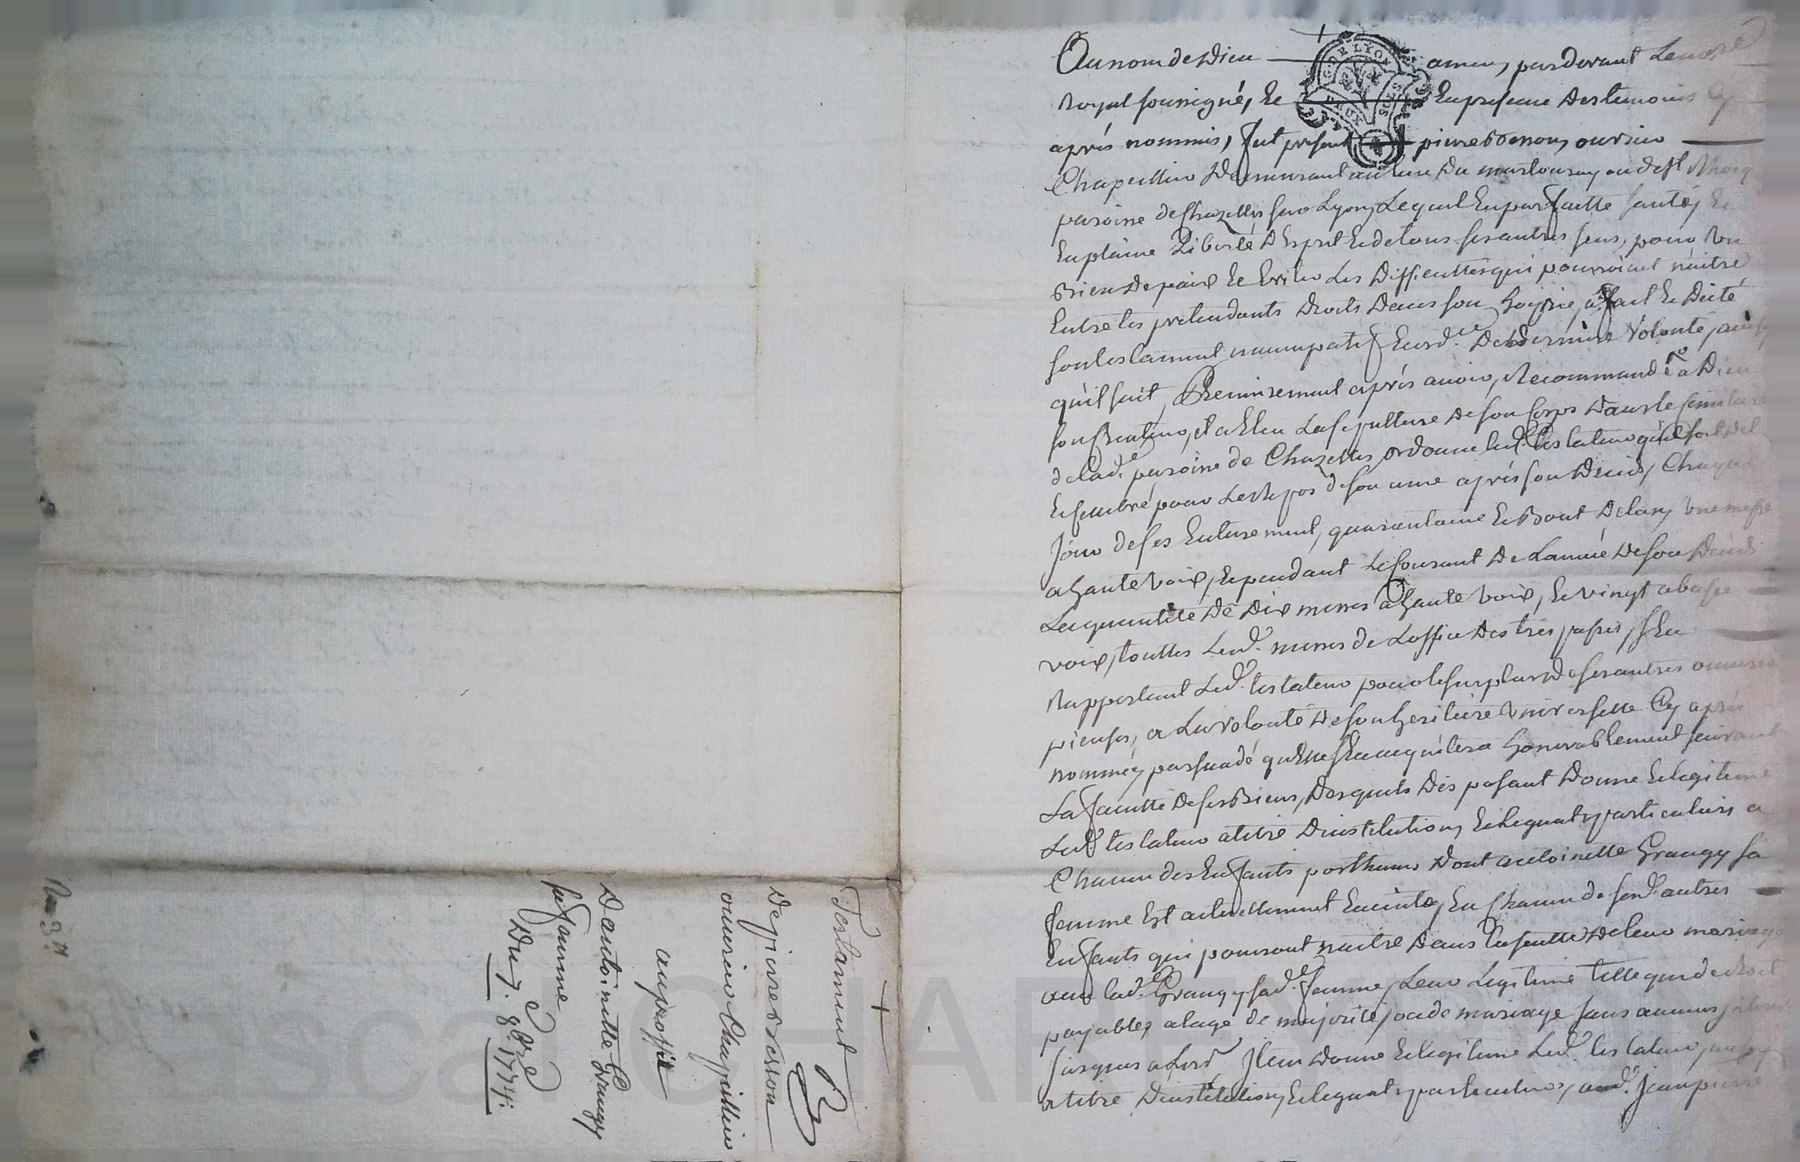 Au nom de Dieu amen, pardevant Le no.re
Royal soussigné, Et En presence Des temoins Cy
aprés nommés, fut present pierre Besson ouvrier
Chapellier Demeurant au lieu Du
paroisse de Chazelles sur Lyon, Lequel En parfaitte santé, Et
En plaine Liberté D'Esprit Et de tous ses autres sens, pour un
Bien de paix Et Eviter Les Difficultés qui pourroient naitre
Entre les pretendants Droits Dans son hoirie, a fait Et Dicté
son testament nuncupatif Et ord.ce De derniere Volonté, ainsy
qu'il suit, Premierement aprés avoir Recommandé a Dieu
son Createur, et a Eleu La sepulture De son Corps Dans le semitiere
de lad.e paroisse de Chazelles, ordonne led.t testateur qu'il soit dit
Et celebré pour Le Repos de son ame aprés son Decés, Chaque
Jour de ses Enterrement, quarantaine Et Bout De l'an, une messe
a haute voix, Et pendant Le Courant De L'année De son Decés
La quantité De Dix messes a haute voix, Et vingt a basse
voix, touttes Lesd.tes messes de L'office Des trés passés, s'En
Rapportant Led.t testateur pour le surplus De ses autres oeuvres
pieuses, a La volonté De son heritiere universelle Cy aprés
nommée, persuadé qu'Elle s'En acquitera honorablement suivant
La faculté De ses Biens, Desquels Disposant Donne Et legitime
Led.t testateur a titre D'institution, Et legat particulier, a
Chacun des Enfants posthumes Dont antoinette Grangy sa
femme Est actuellement Enceinte, Ou Chacun de send.t autres
Enfants qui pourront naitre Dans La suitte De leur mariage
avec lad.e Grangy sad.e femme, Leur Legitime telle que de droit
payable, a l'age de majorité, ou de mariage sans aucuns
jusques alors, Item Donne Et legitime Led.t testateur, aussy
a titre D'institution, Et legat particulier, aud.t Jean pierre
Testament
De pierre Besson
ouvrier Chapellier
au profit
D'antoinette Grangy
sa femme
Du 7. 8bre 1774.